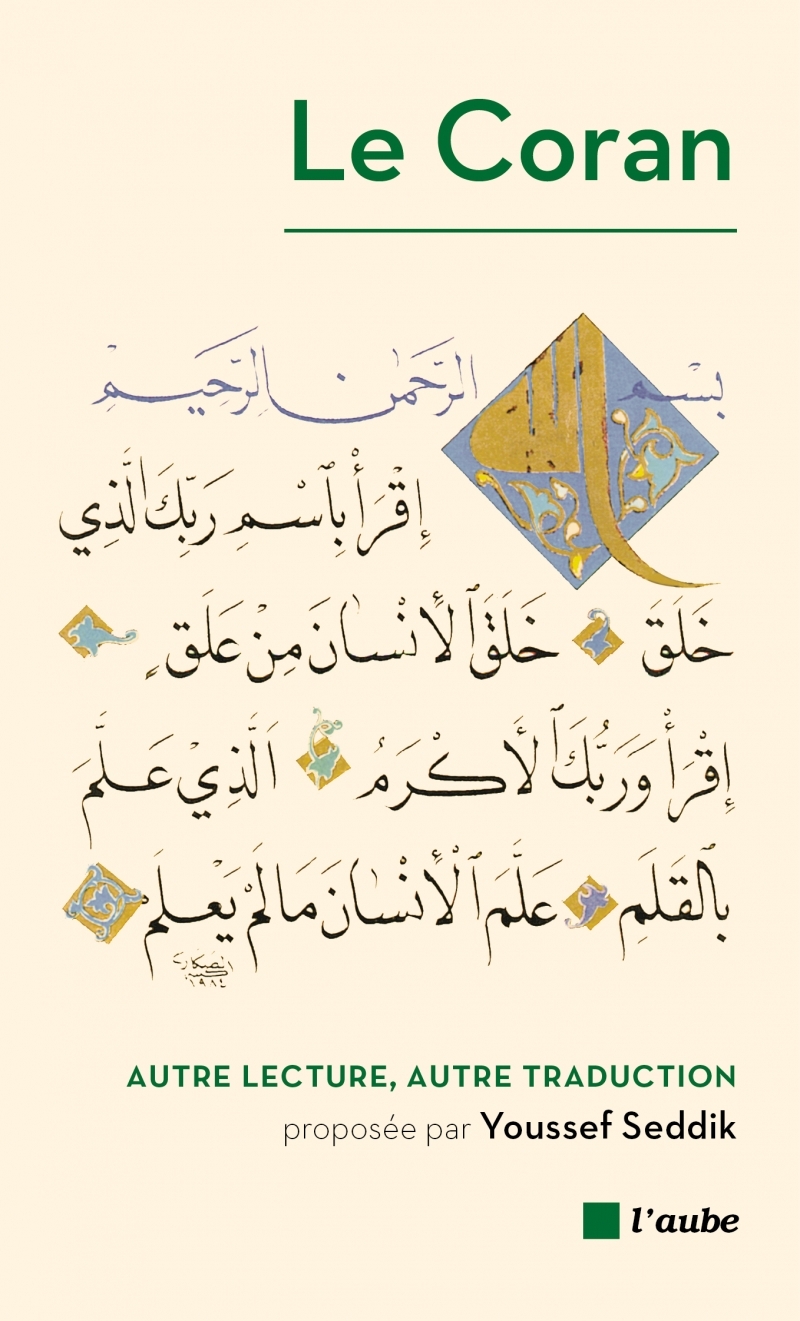 Le Coran
بِسْمِ الله الرَّحْمٰنِ الرَّحِيمِ
إِقْرَأْ بِٱسْمِ رَبِّكَ الَّذِي
خَلَقَ خَلَقَ ٱلْأِنْسَانَ مِنْ عَلَقٍ
إِقْرَأْ وَرَبُّكَ ٱلْأَكْرَمُ اَلَّذِي عَلَّمَ
بِٱلْقَلَمِ عَلَّمَ ٱلْأِنْسَانَ مَا لَمْ يَعْلَمْ
١٩٨٤
AUTRE LECTURE, AUTRE TRADUCTION
proposée par Youssef Seddik
l'aube